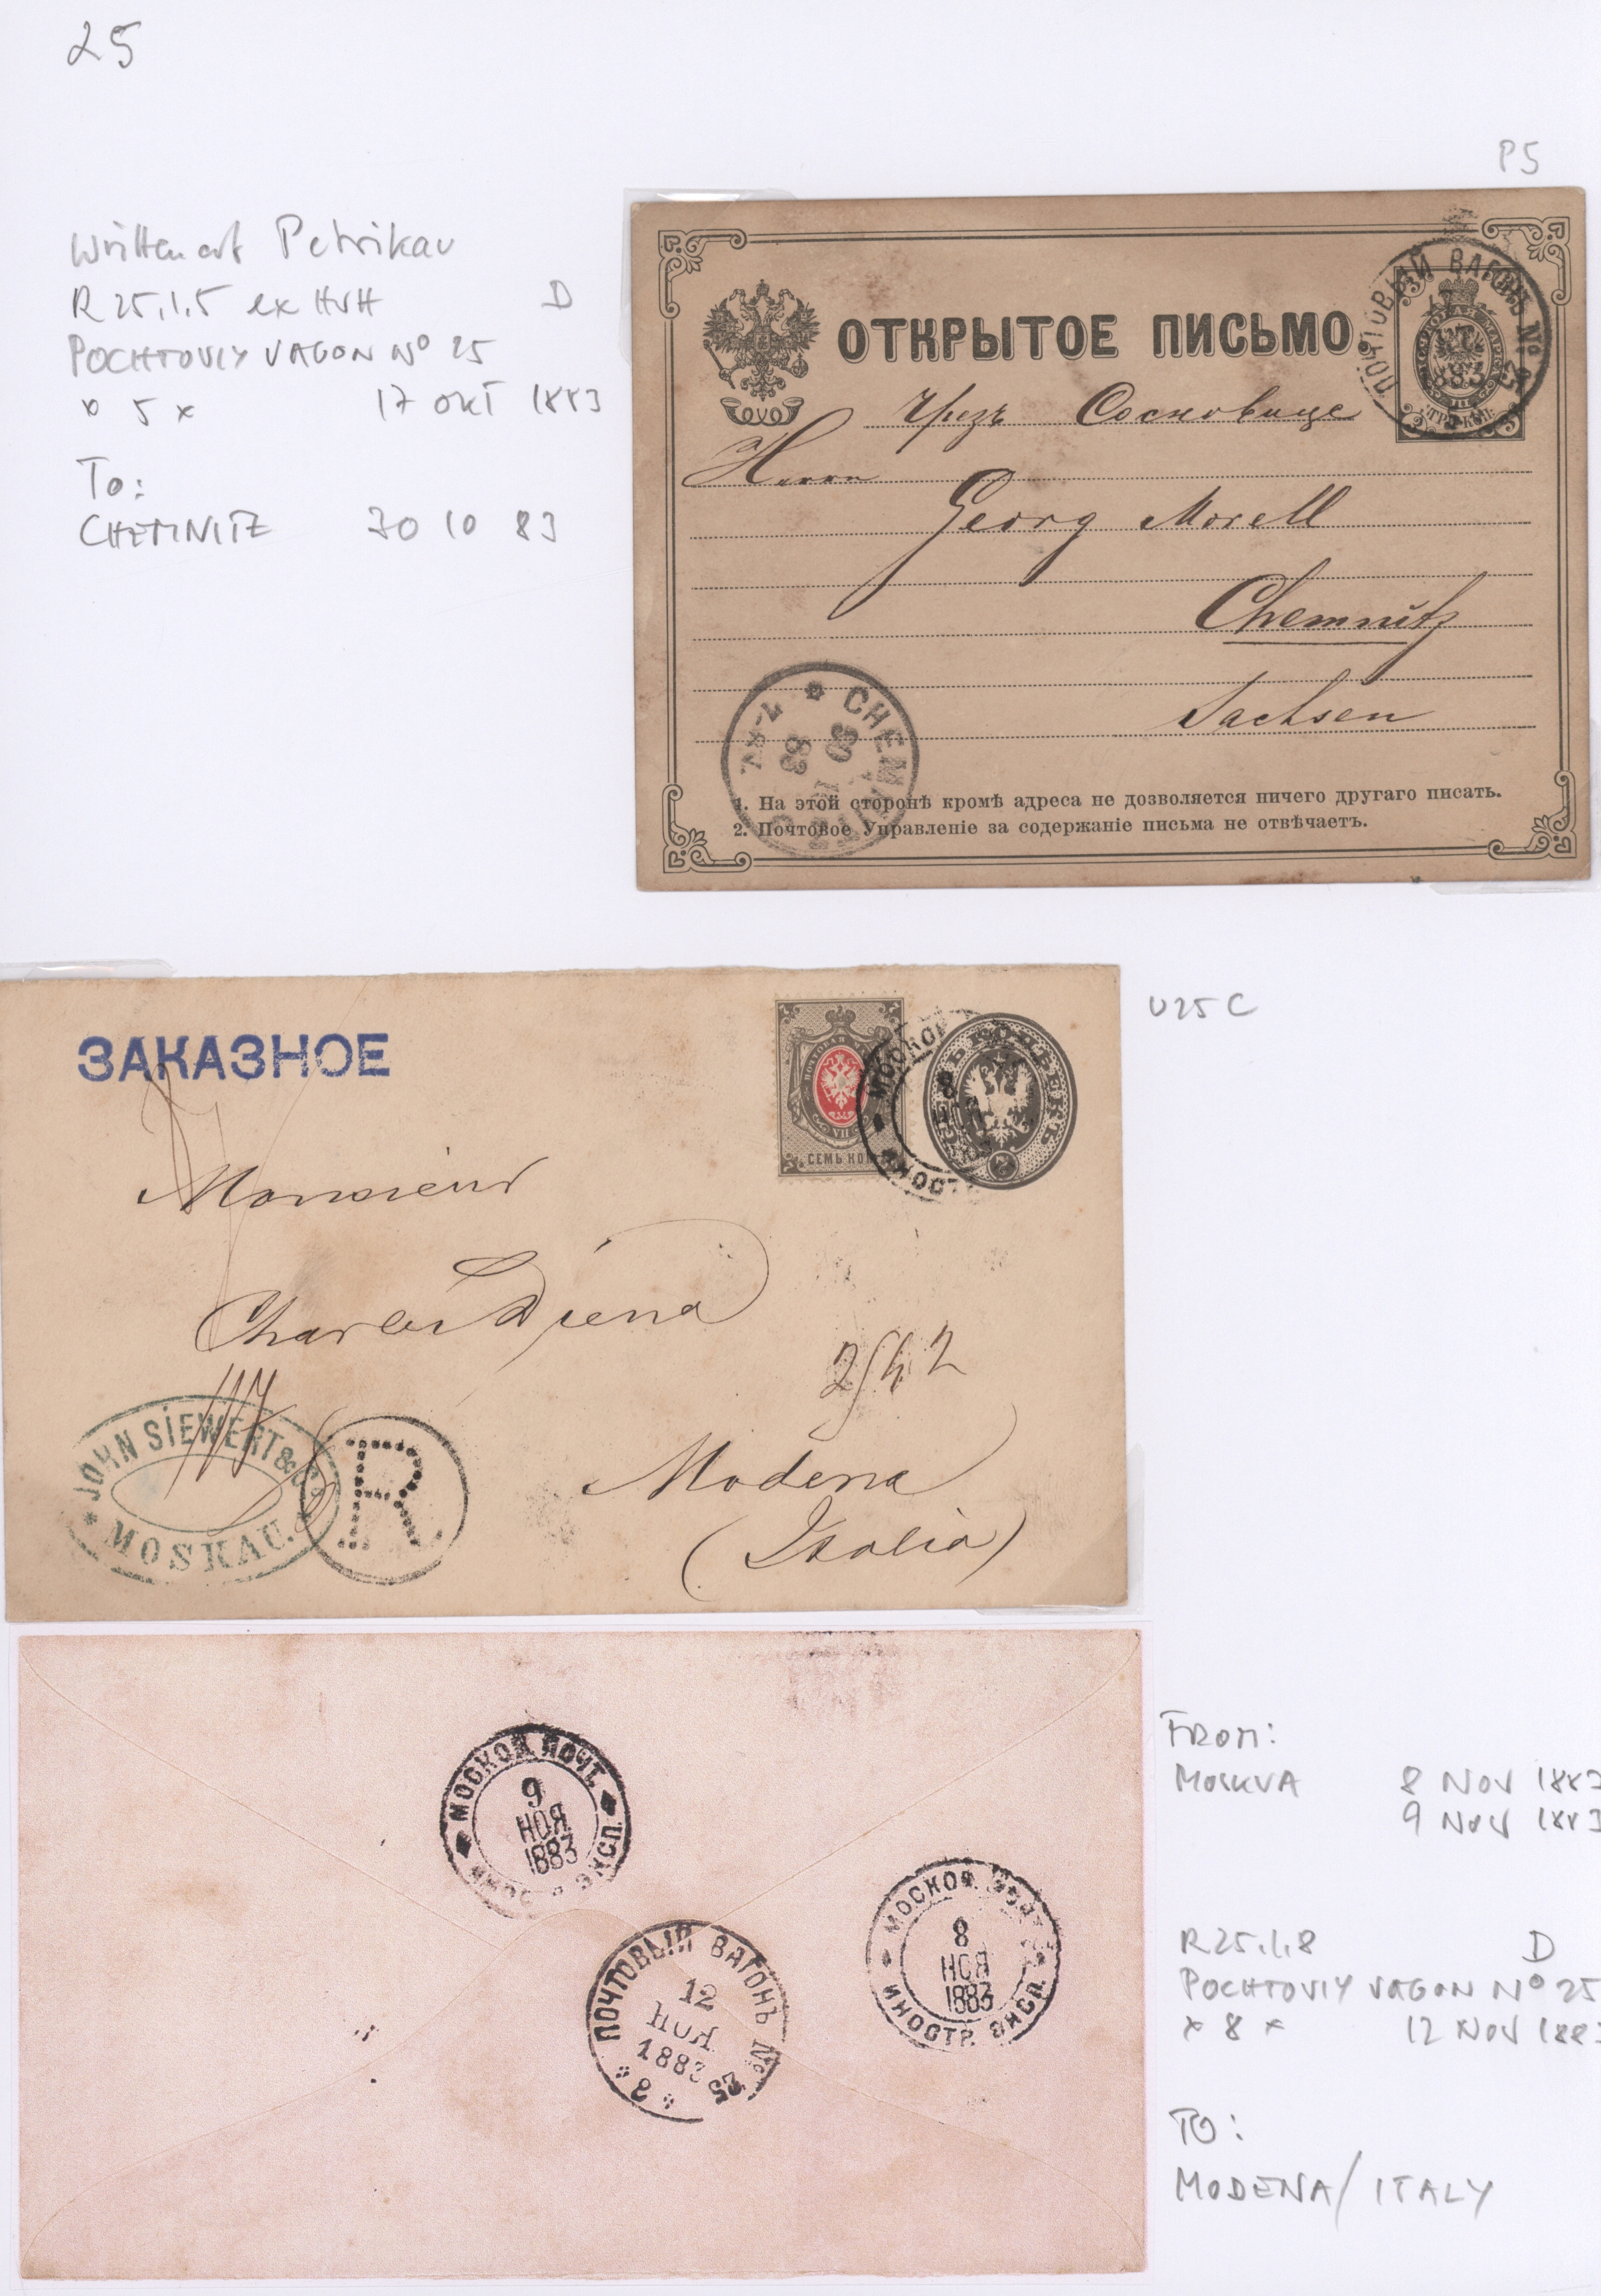 25
P5
Written at Petrikau
R 25.1.5 ex HVH D
POCHTOVIY VAGON Nº 25
* 5 * 17 OKT 1883
To:
CHEMNITZ 30 10 83
ПОЧТОВЫЙ ВАГОНЪ № 25
883
ОТКРЫТОЕ ПИСЬМО.
чрезъ Сосновице
Herrn
Georg Morell
Chemnitz
Sachsen
CHEMNITZ
30
83
7-8V
1. На этой сторонѣ кромѣ адреса не дозволяется ничего другаго писать.
2. Почтовое Управленіе за содержаніе письма не отвѣчаетъ.
U25C
ЗАКАЗНОЕ
VII
СЕМЬ КОП
МОСКОВ
8
7
Monsieur
Charles Diena
2542
JOHN SIEWERT & Co
MOSKAU.
R
Modena
(Italia)
МОСКОВ. ПОЧТ.
9
НОЯ
1883
ЭКСП.
МОСКОВ.
8
НОЯ
1883
ИНОСТР. ЭКСП.
ПОЧТОВЫЙ ВАГОНЪ № 25
12
НОЯ
1883
FROM:
MOSKVA 8 NOV 1883
9 NOV 1883
R25.1.8 D
POCHTOVIY VAGON Nº 25
* 8 * 12 NOV 1883
TO:
MODENA/ITALY